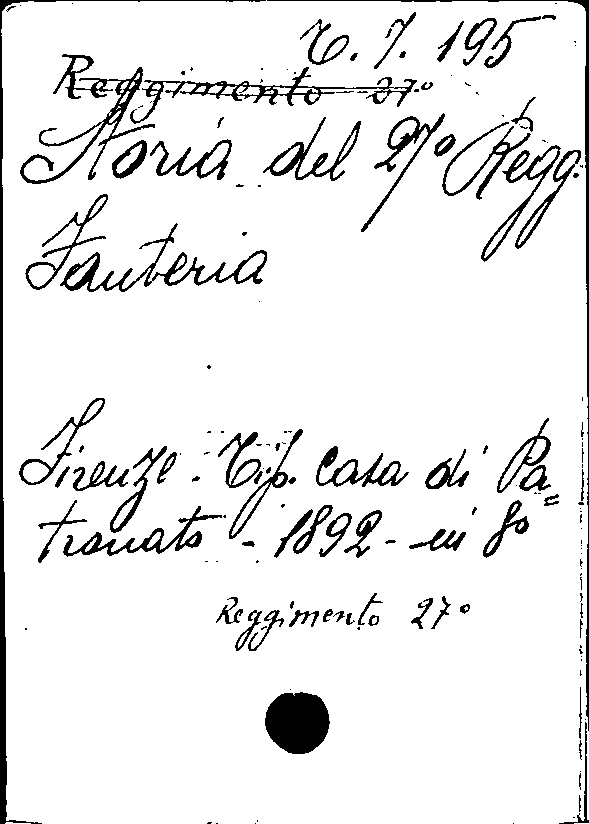 C. 7. 195
Reggimento 27º
Storia del 27º Regg.
Fanteria
Firenze. Tip. Casa di Pa=
tronato - 1892 - in 8º
Reggimento 27º